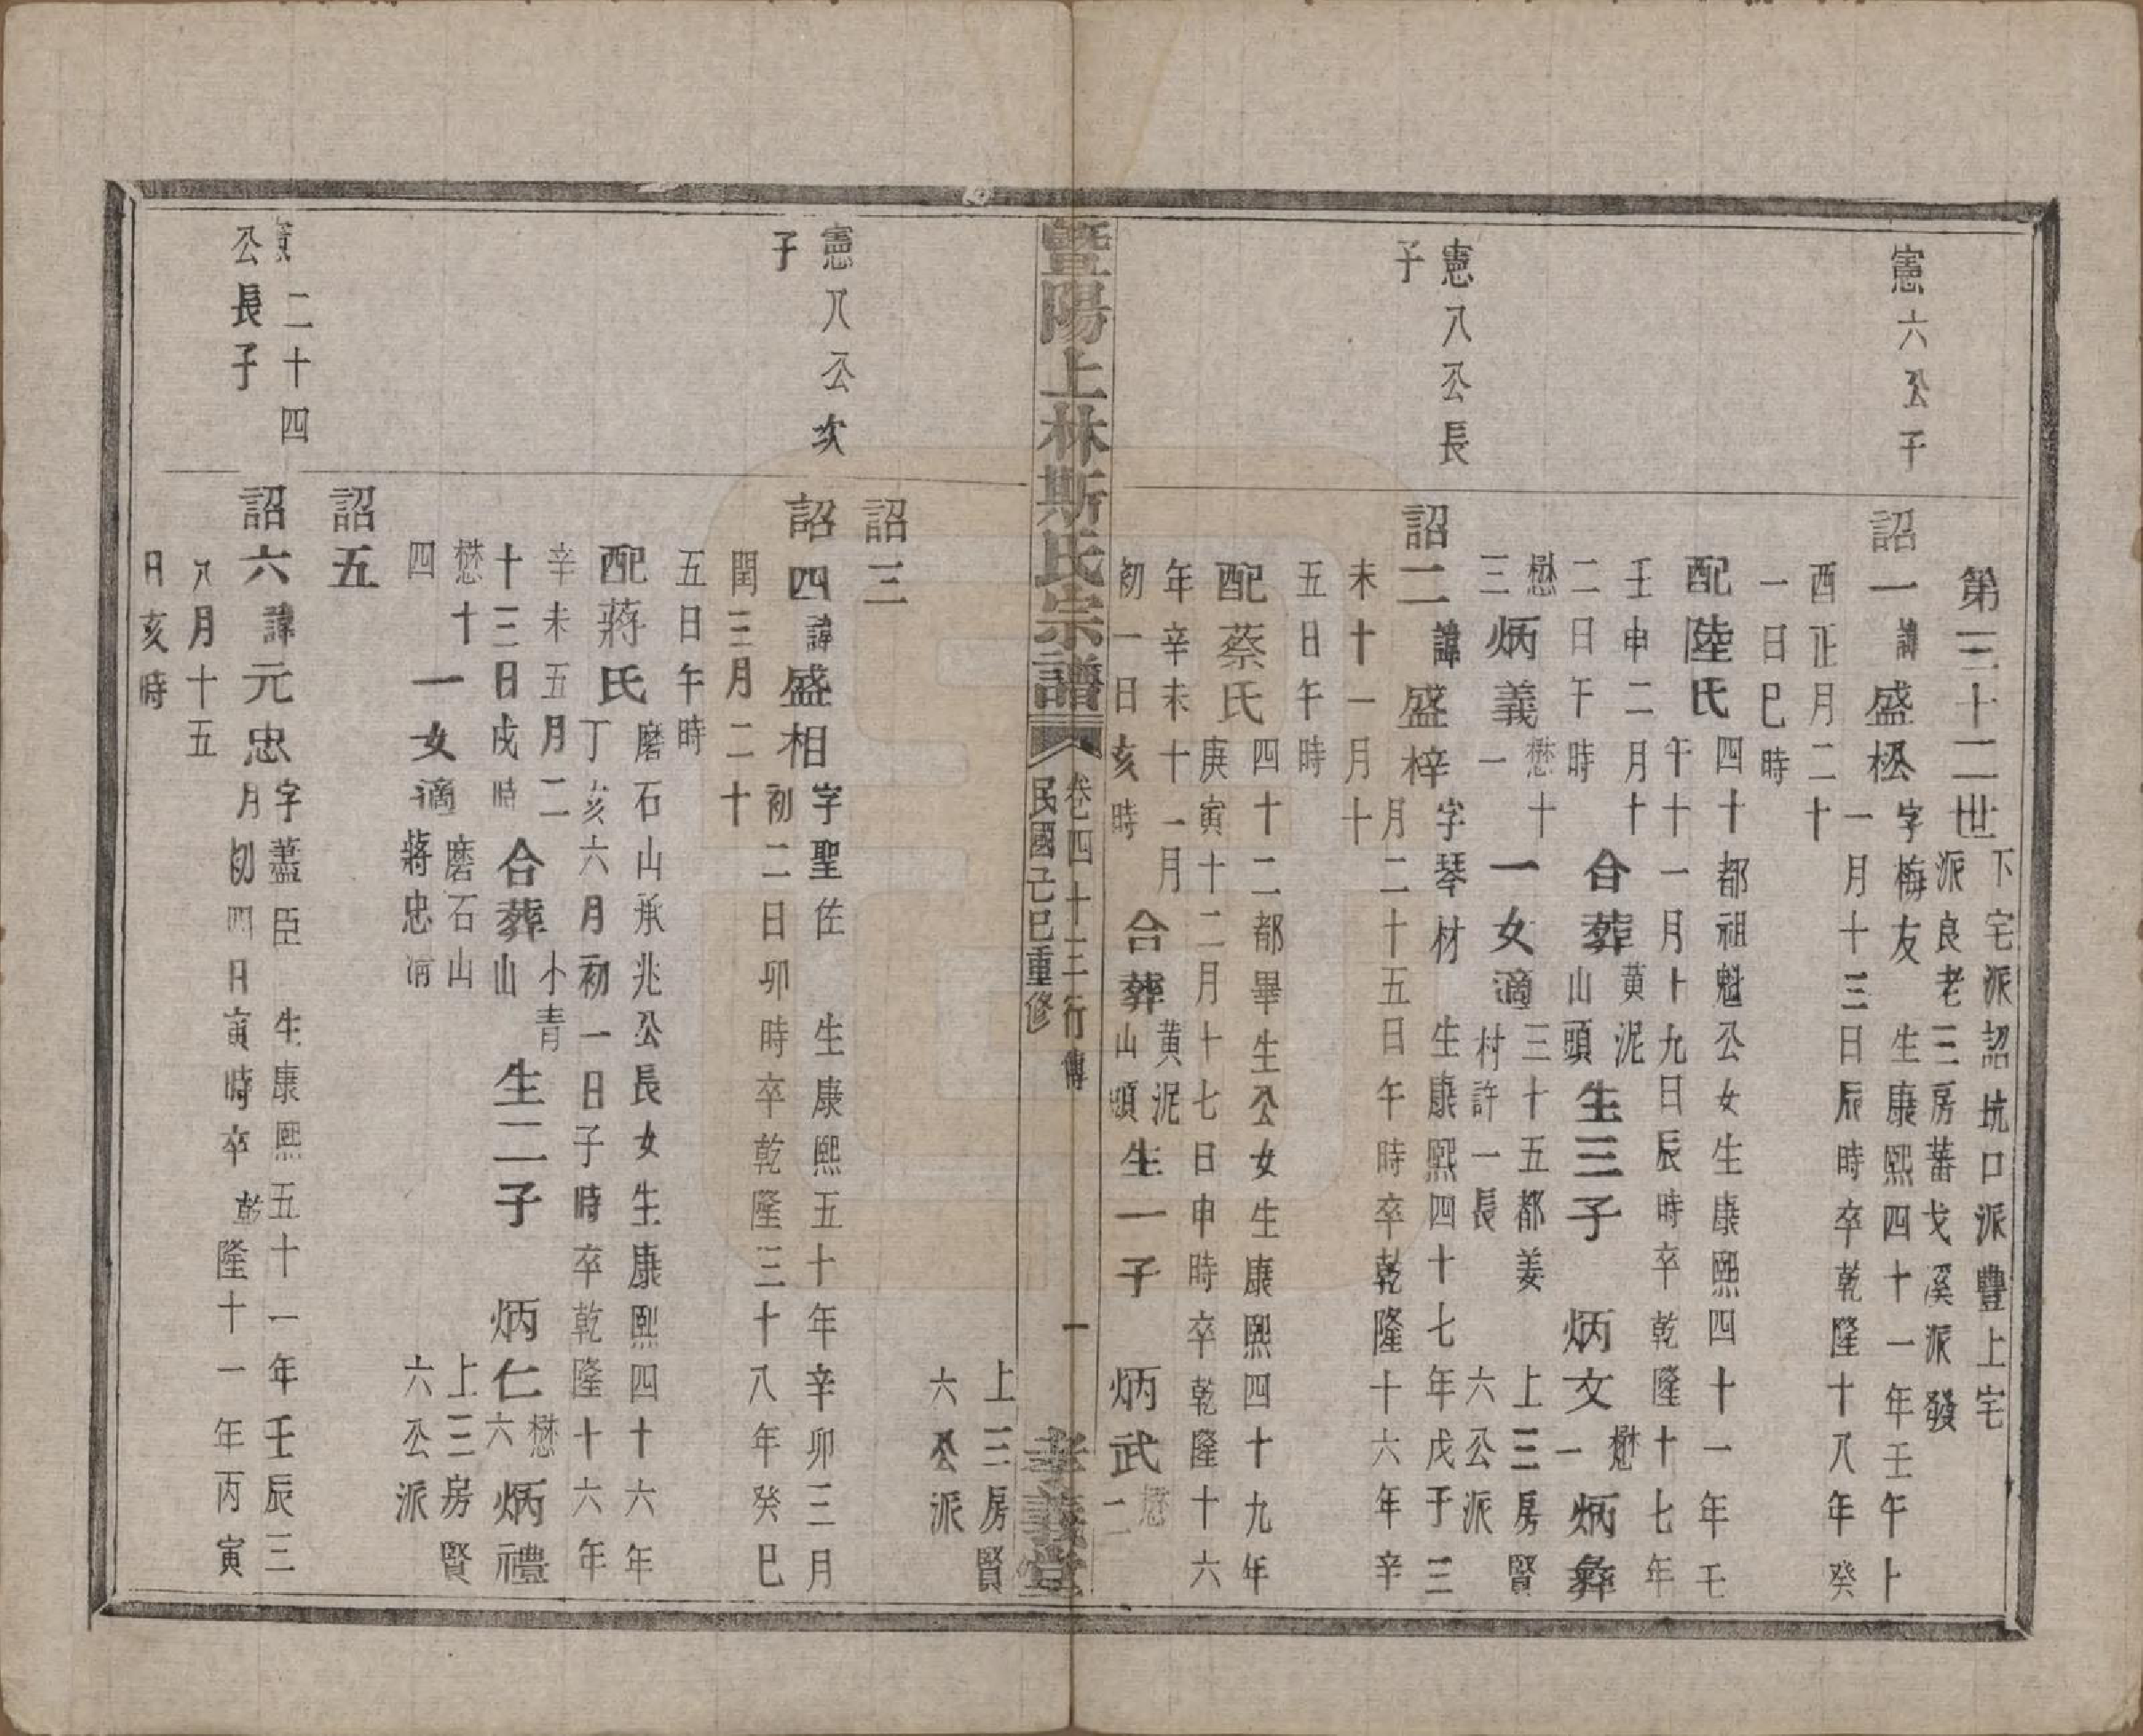 第三十二世
下宅派詔坑口派豐上宅
派良老三房蕃戈溪派發
憲六公子
詔一諱盛松
字梅友 生康熙四十一年壬午十
一月十三日辰時卒乾隆十八年癸
酉正月二十
一日巳時
配陸氏
四十都祖魁公女生康熙四十一年壬
午十一月十九日辰時卒乾隆十七年
壬申二月十
二日午時
合葬
黄泥
山頭
生三子 炳文
懋
一
炳彝
懋十
三
炳義
懋十
一
一女適
三十五都姜
村許一長
上三房賢
六公派
憲八公長
子
詔二諱盛梓
字琴材 生康熙四十七年戊子三
月二十五日午時卒乾隆十六年辛
未十一月十
五日午時
配蔡氏
四十二都畢生公女生康熙四十九年
庚寅十二月十七日申時卒乾隆十六
年辛未十一月
初一日亥時
合葬
黄泥
山頭
生一子 炳武
懋
二
暨陽上林斯氏宗譜
卷四十三行傳
民國己巳重修
一
孝義堂
上三房賢
六公派
詔三
憲八公次
子
詔四諱盛相
字聖佐 生康熙五十年辛卯三月
初二日卯時卒乾隆三十八年癸巳
閏三月二十
五日午時
配蔣氏
磨石山承兆公長女生康熙四十六年
丁亥六月初一日子時卒乾隆十六年
辛未五月二
十三日戌時
合葬
小青
山
生二子 炳仁
懋
六
炳禮
懋十
四
一女適
磨石山
蔣忠清
上三房賢
六公派
詔五
二十四
公長子
詔六諱元忠
字藎臣 生康熙五十一年壬辰三
月初四日寅時卒乾隆十一年丙寅
八月十五
日亥時